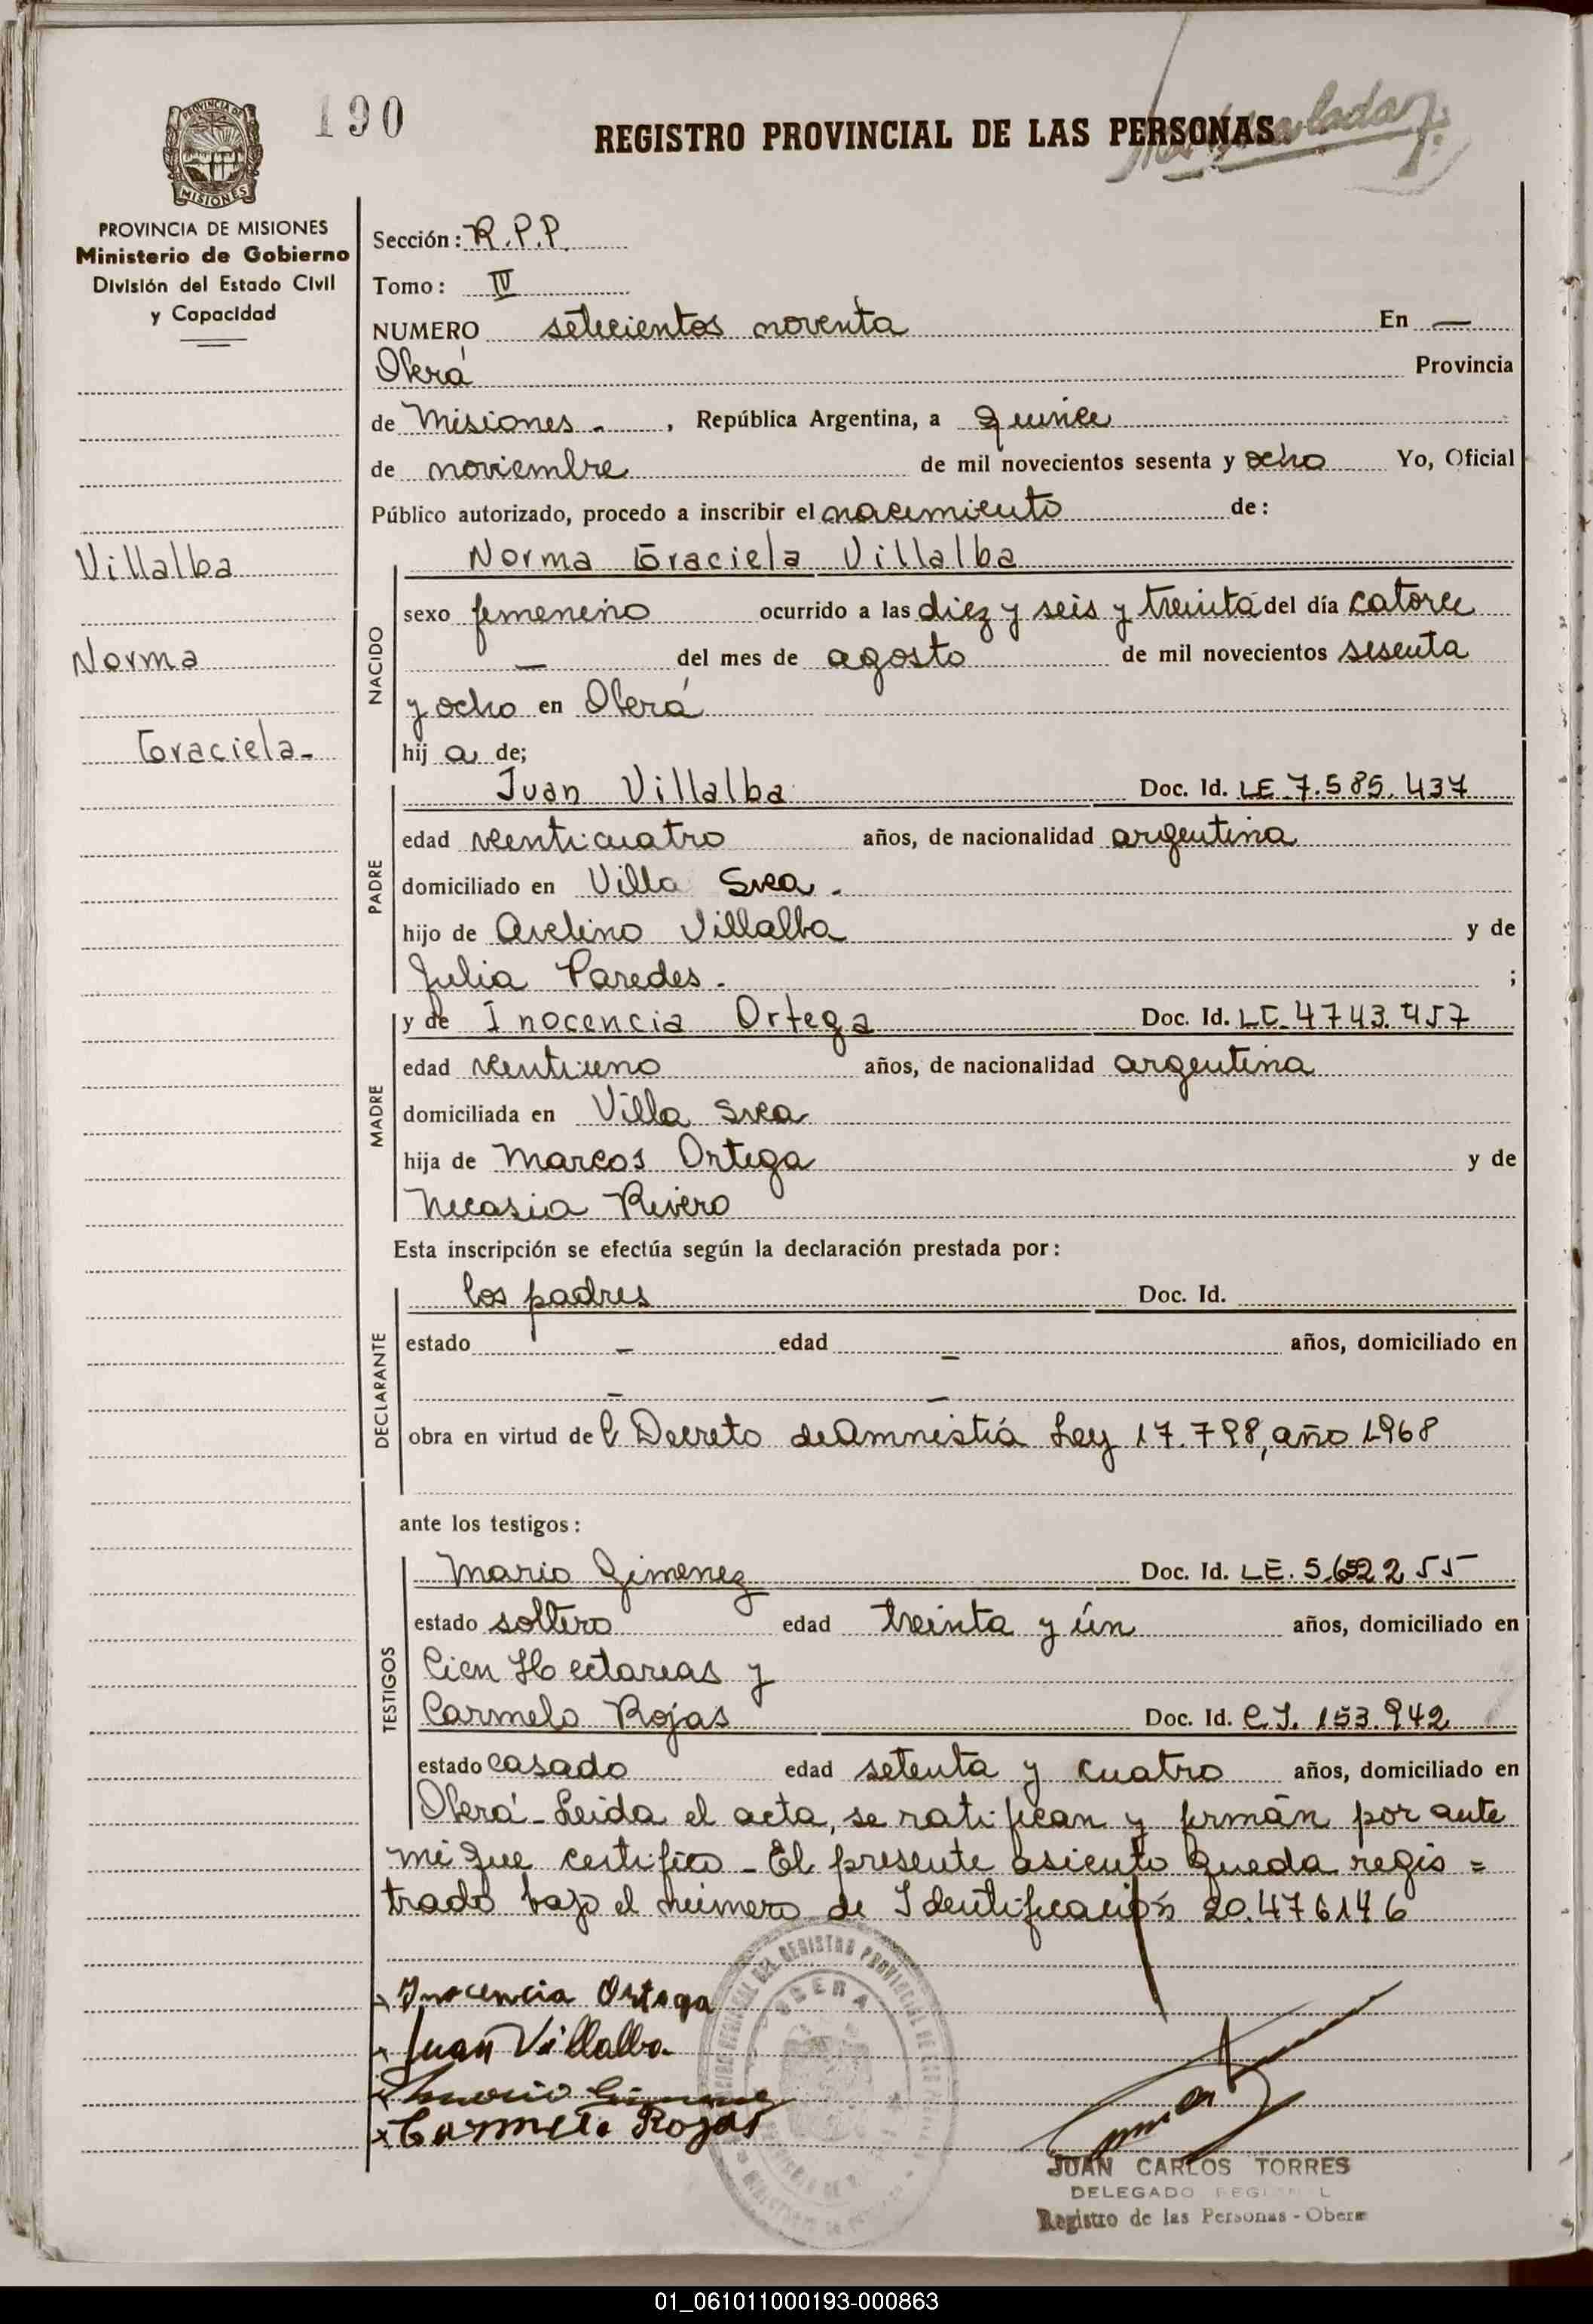 190
REGISTRO PROVINCIAL DE LAS PERSONAS
PROVINCIA DE
MISIONES
PROVINCIA DE MISIONES
Ministerio de Gobierno
División del Estado Civil
y Capacidad
Villalba
Norma
Graciela-
Sección: R.P.P.
Tomo: IV
NUMERO setecientos noventa En —
Oberá Provincia
de Misiones - , República Argentina, a quince
de noviembre de mil novecientos sesenta y ocho Yo, Oficial
Público autorizado, procedo a inscribir el nacimiento de:
NACIDO
Norma Graciela Villalba
sexo femenino ocurrido a las diez y seis y treinta del día catorce
— del mes de agosto de mil novecientos sesenta
y ocho en Oberá
hij a de;
PADRE
Juan Villalba Doc. Id. LE 7.585.437
edad venticuatro años, de nacionalidad argentina
domiciliado en Villa Svea -
hijo de Avelino Villalba y de
Julia Paredes - ;
MADRE
y de Inocencia Ortega Doc. Id. LC. 4743.457
edad ventiuno años, de nacionalidad argentina
domiciliada en Villa Svea
hija de Marcos Ortega y de
Necasia Rivero
Esta inscripción se efectúa según la declaración prestada por:
DECLARANTE
los padres Doc. Id.
estado — edad — años, domiciliado en
— —
obra en virtud de l Decreto de Amnistiá Ley 17.798, año 1968
ante los testigos:
TESTIGOS
Mario Gimenez Doc. Id. LE. 5.652255
estado soltero edad treinta y ún años, domiciliado en
Cien Hectareas y
Carmelo Rojas Doc. Id. C.I. 153.942
estado casado edad setenta y cuatro años, domiciliado en
Oberá - Leida el acta, se ratifican y firmán por ante
mi que certifico - El presente asiento queda regis =
trado bajo el número de Identificación 20.476146
x Inocencia Ortega
x Juan Villalba
x Mario Gimenez
x Carmelo Rojas
OBERA
JUAN CARLOS TORRES
DELEGADO REGIONAL
Registro de las Personas - Obera
01_061011000193-000863